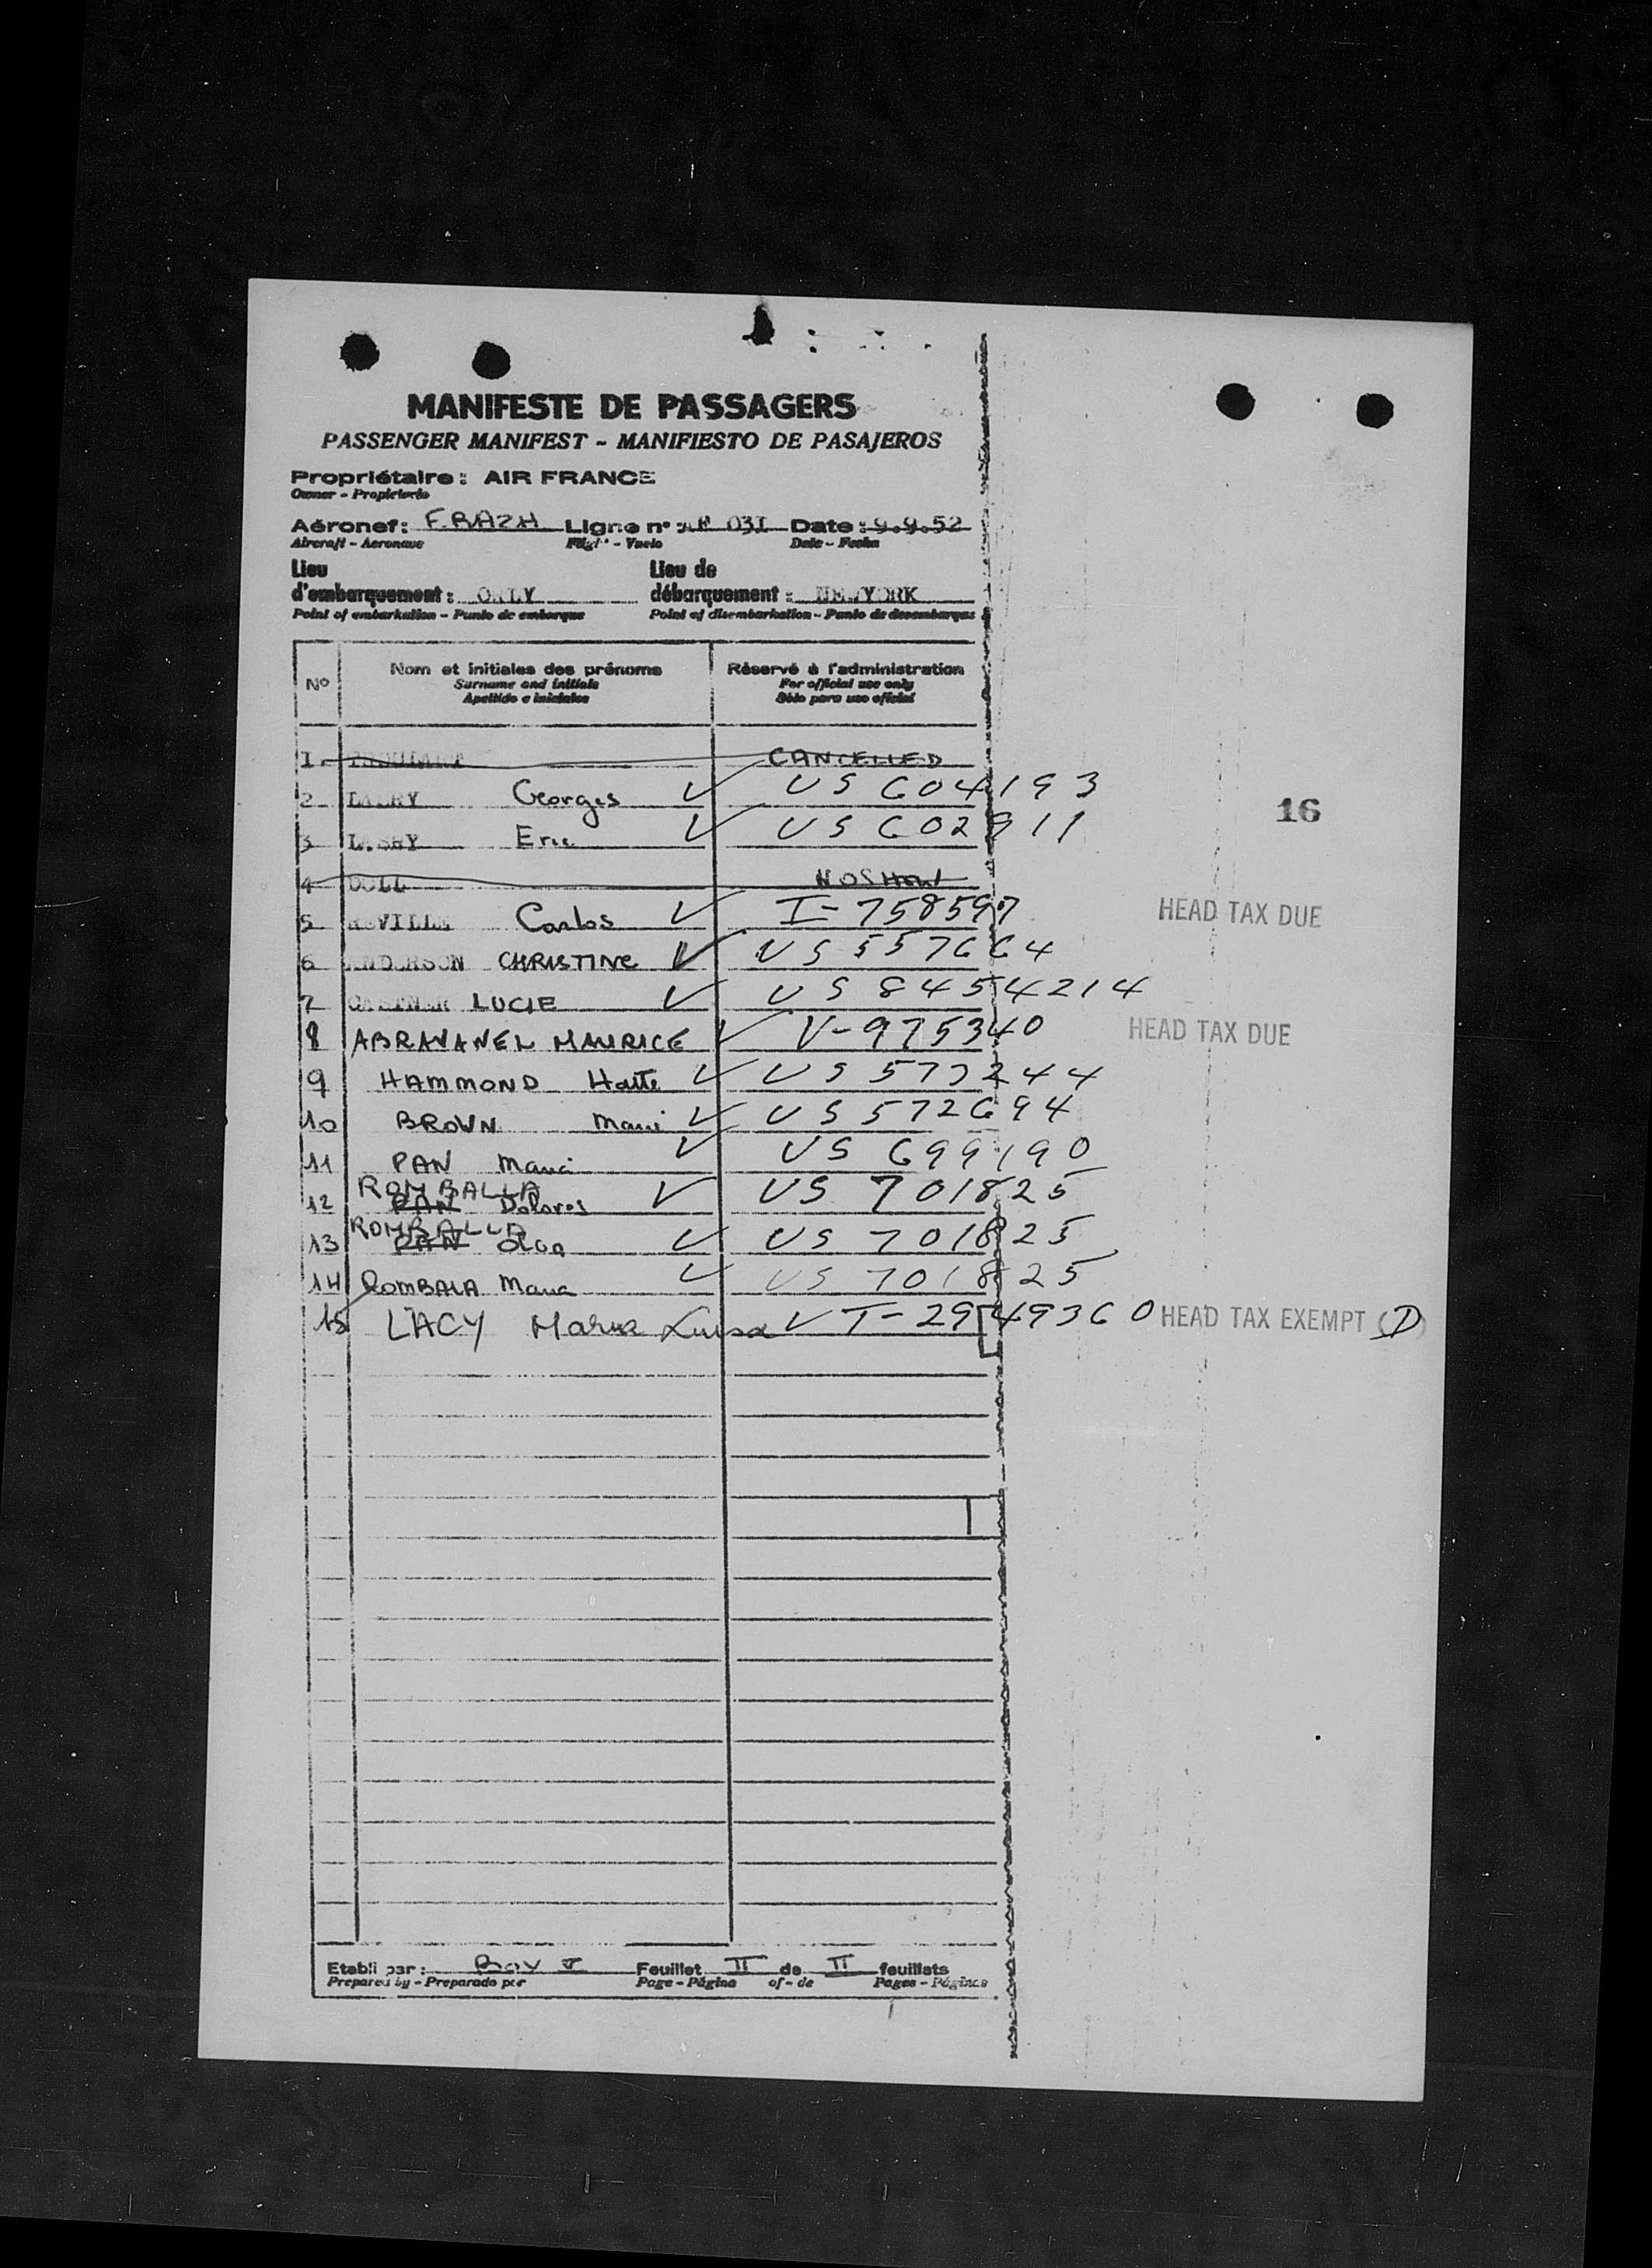 MANIFESTE DE PASSAGERS
PASSENGER MANIFEST - MANIFIESTO DE PASAJEROS
Propriétaire : AIR FRANCE
Owner - Propietario
Aéronef : F.BAZH Ligne n° AF 031 Date : 9.9.52
Aircraft - Aeronave Flight - Vuelo Date - Fecha
Lieu Lieu de
d'embarquement : ORLY débarquement : NEW YORK
Point of embarkation - Punto de embarque Point of disembarkation - Punto de desembarque
N° Nom et initiales des prénoms Réservé à l'administration
Surname and initials For official use only
Apellido e iniciales Sólo para uso oficial
1 CANCELLED
2 Georges ✓ US 604193
16
3 Eric ✓ US 602911
4 DOLL NOSHOW
5 Carlos ✓ I-758597 HEAD TAX DUE
6 ANDERSON CHRISTINE ✓ US 557664
7 LUCIE ✓ US 8454214
8 ABRAVANEL MAURICE ✓ V-975340 HEAD TAX DUE
9 HAMMOND ✓ US 577244
10 BROWN ✓ US 572694
11 PAN ✓ US 699190
12 ROMBALLA PAN Dolores ✓ US 701825
13 ROMBALLA PAN Olga ✓ US 701825
14 ROMBALA Maria ✓ US 701825
15 LACY Maria Luisa ✓ T-2949360 HEAD TAX EXEMPT (D)
Etabli par : Feuillet II de II feuillets
Prepared by - Preparado por Page - Página of - de Pages - Páginas